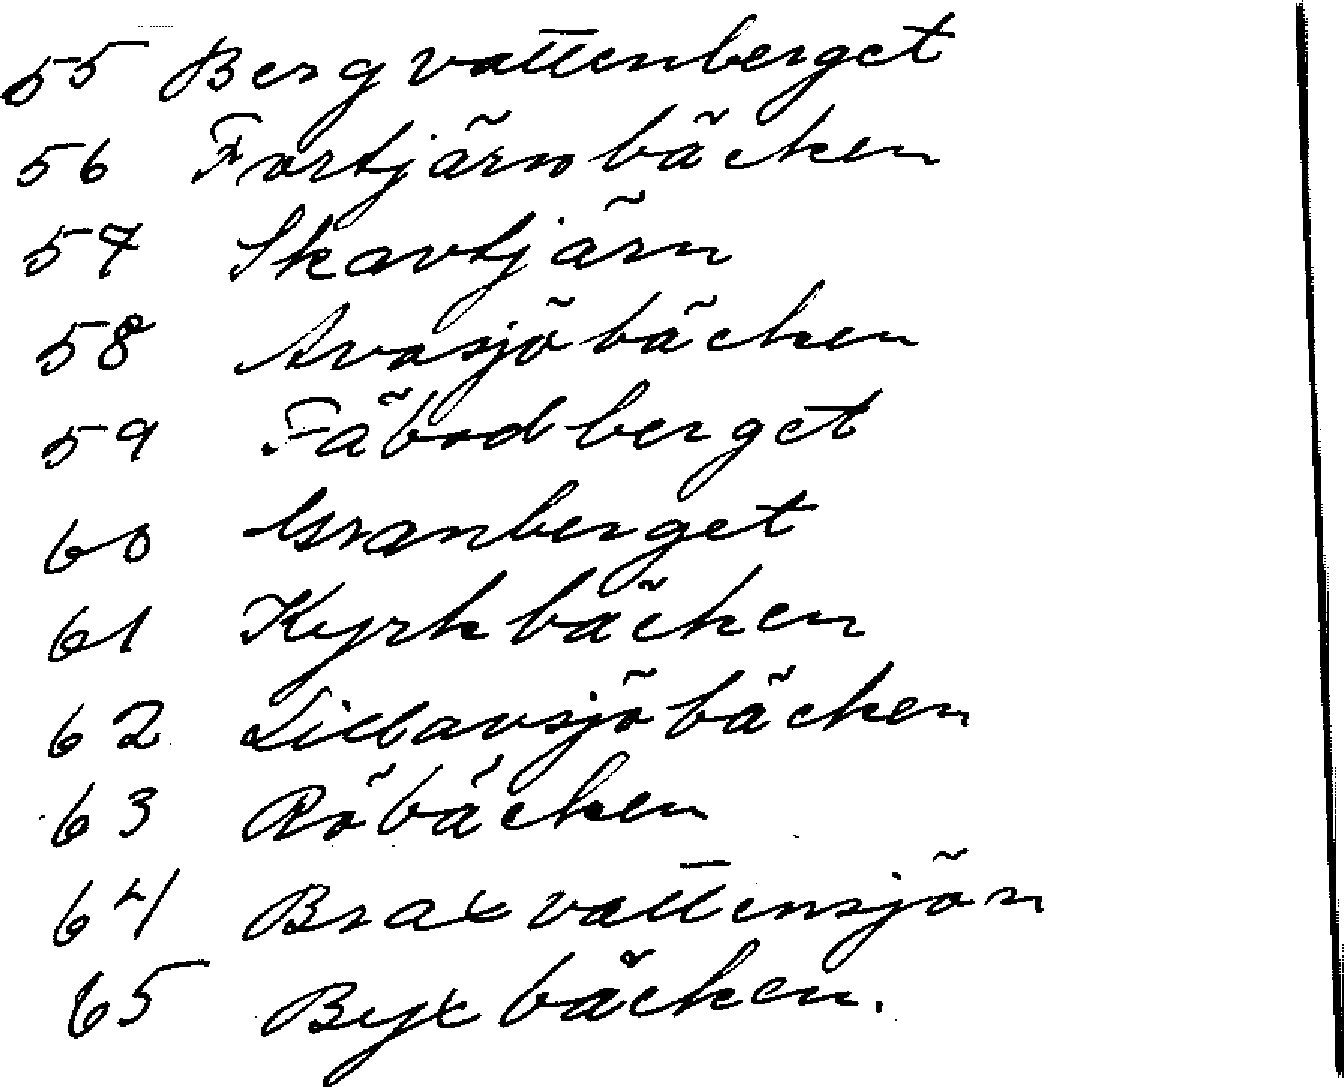 55 Bergvattenberget
56 Fortjärnbäcken
57 Skavtjärn
58 Avasjöbäcken
59 Fäbodberget
60 Granberget
61 Kyrkbäcken
62 Lillavasjöbäcken
63 Röbäcken
64 Braxvattensjön
65 Byxbäcken.